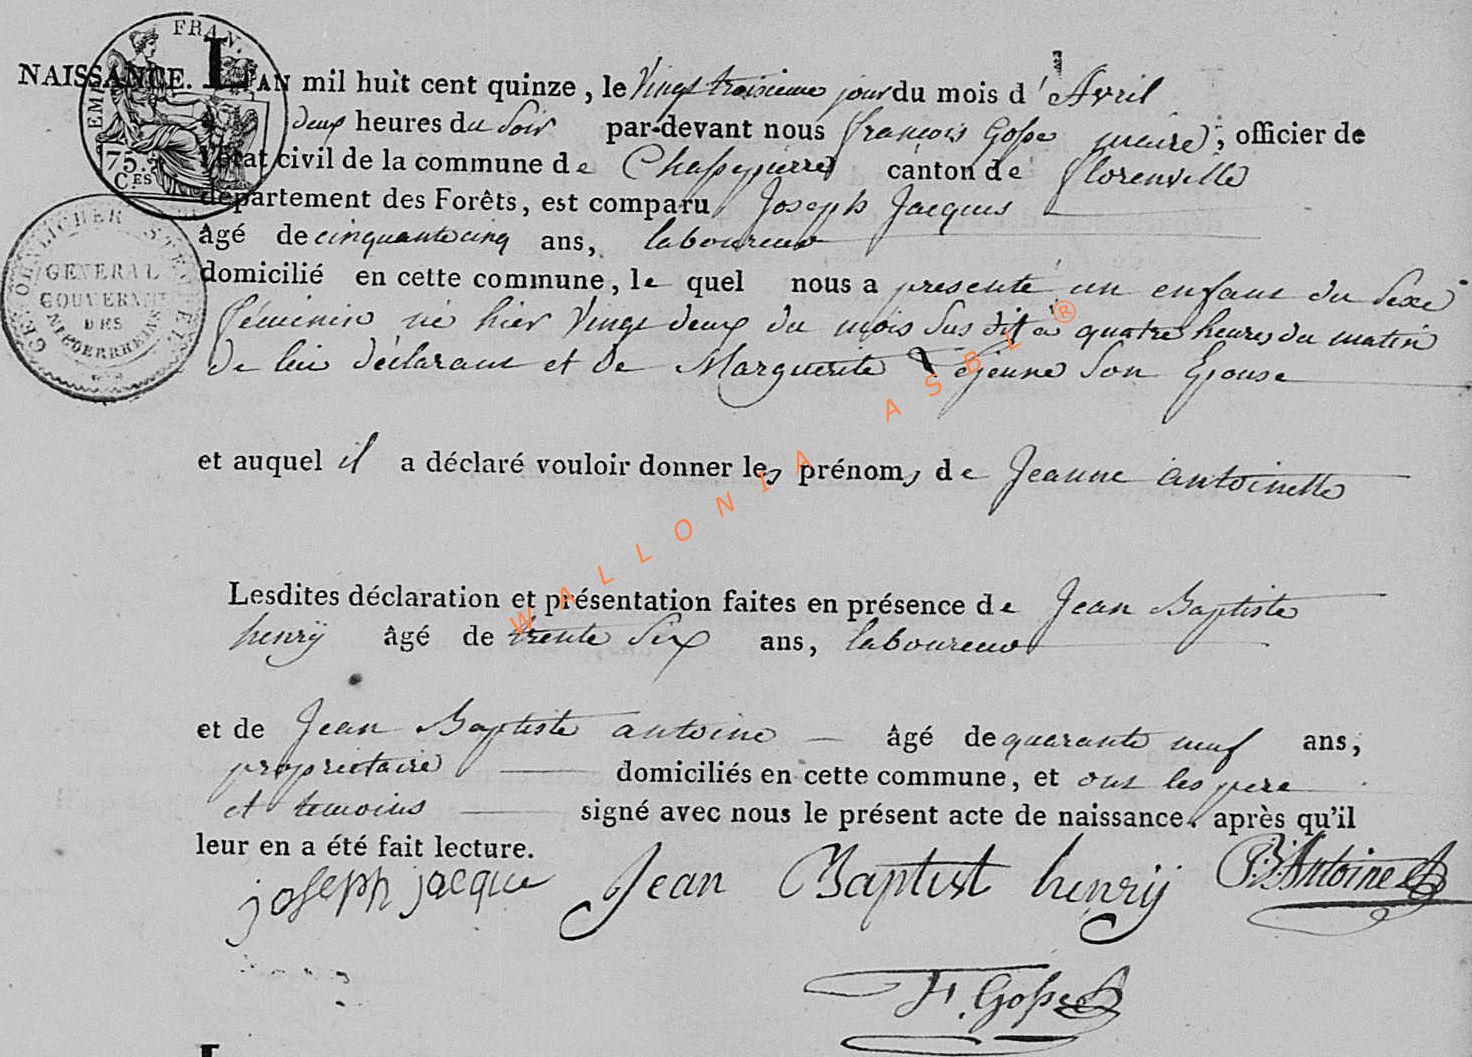 NAISSANCE. L'AN mil huit cent quinze, le Vingt troisieme jour du mois d'Avril
a deux heures du Soir par-devant nous françois Gosse maire, officier de
l'état civil de la commune de Chassepierre canton de florenville
département des Forêts, est comparu Joseph Jacques
âgé de cinquante cinq ans, laboureur
domicilié en cette commune, le quel nous a presenté un enfant du Sexe
féminin né hier Vingt deux du mois Sus dit à quatre heures du matin
de lui déclarant et de Marguerite Lejeune Son Epouse
et auquel il a déclaré vouloir donner les prénoms de Jeanne antoinette
Lesdites déclaration et présentation faites en présence de Jean Baptiste
henrÿ âgé de trente Six ans, laboureur
et de Jean Baptiste antoine âgé de quarante neuf ans,
propriétaire domiciliés en cette commune, et ont les pere
et temoins signé avec nous le présent acte de naissance, après qu'il
leur en a été fait lecture.
joseph jacque Jean Baptist henrÿ J:B:Antoine
F. Gosse
EMP FRAN.
75. CES
GENERAL
GOUVERNMT
DES
WALLONIA ASBL ®